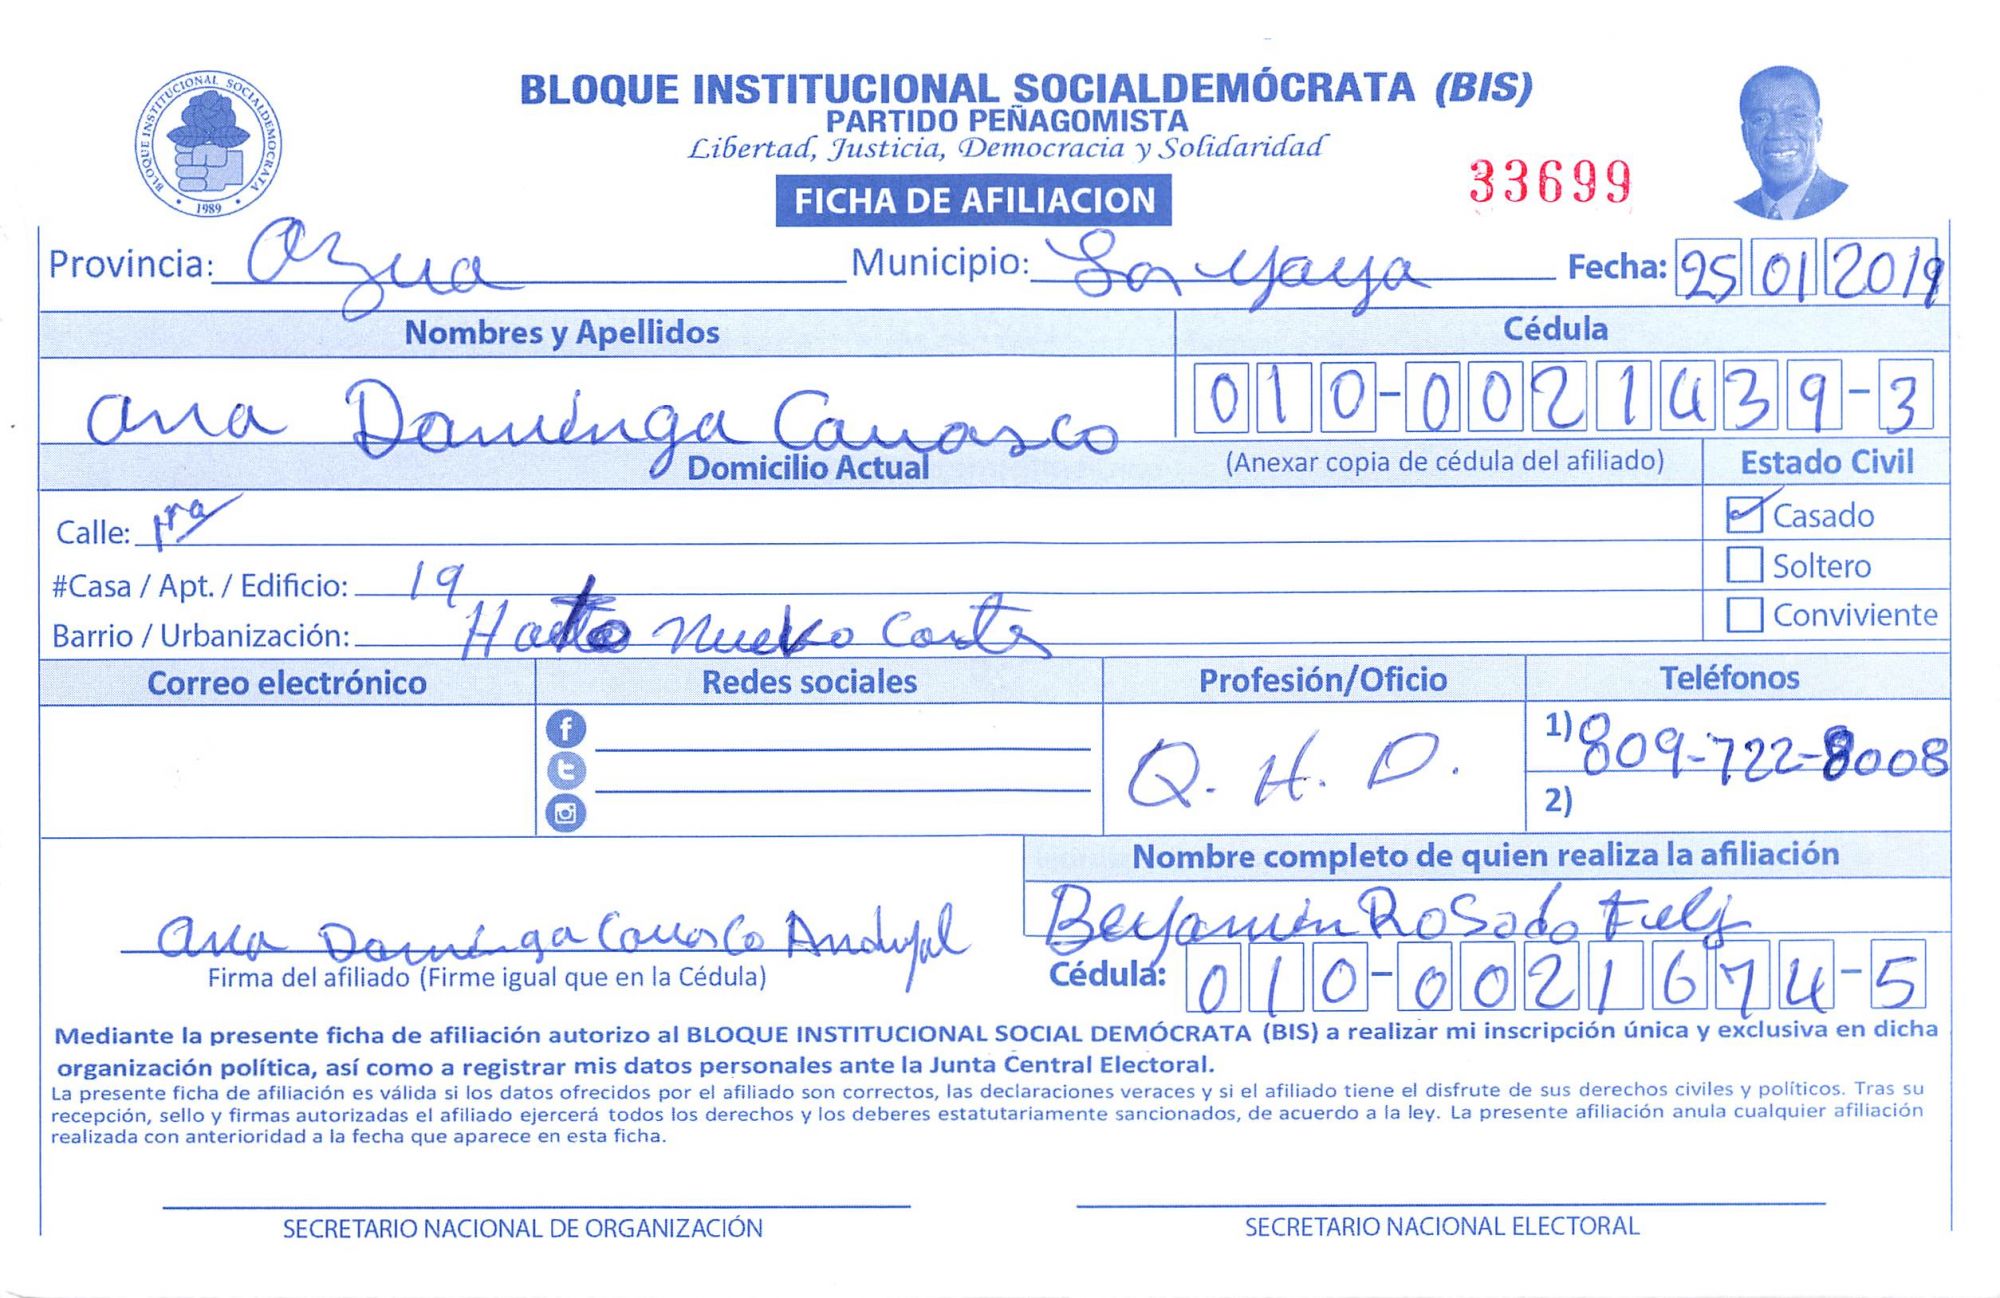 BLOQUE INSTITUCIONAL SOCIALDEMÓCRATA
1989
BLOQUE INSTITUCIONAL SOCIALDEMÓCRATA (BIS)
PARTIDO PEÑAGOMISTA
Libertad, Justicia, Democracia y Solidaridad
33699
FICHA DE AFILIACION
Provincia: Azua Municipio: La Yaya Fecha: 25 01 2019
Nombres y Apellidos Cédula
Ana Daminga Carrasco 010-0021439-3
Domicilio Actual (Anexar copia de cédula del afiliado) Estado Civil
Calle: 1ra Casado
#Casa / Apt. / Edificio: 19 Soltero
Barrio / Urbanización: Hato Nuevo Cortes Conviviente
Correo electrónico Redes sociales Profesión/Oficio Teléfonos
Q. H. D. 1) 809-722-8008
2)
Nombre completo de quien realiza la afiliación
Benjamin Rosado Feliz
Ana Daminga Carrasco Andujal
Firma del afiliado (Firme igual que en la Cédula) Cédula: 010-0021674-5
Mediante la presente ficha de afiliación autorizo al BLOQUE INSTITUCIONAL SOCIAL DEMÓCRATA (BIS) a realizar mi inscripción única y exclusiva en dicha
organización política, así como a registrar mis datos personales ante la Junta Central Electoral.
La presente ficha de afiliación es válida si los datos ofrecidos por el afiliado son correctos, las declaraciones veraces y si el afiliado tiene el disfrute de sus derechos civiles y políticos. Tras su
recepción, sello y firmas autorizadas el afiliado ejercerá todos los derechos y los deberes estatutariamente sancionados, de acuerdo a la ley. La presente afiliación anula cualquier afiliación
realizada con anterioridad a la fecha que aparece en esta ficha.
SECRETARIO NACIONAL DE ORGANIZACIÓN SECRETARIO NACIONAL ELECTORAL